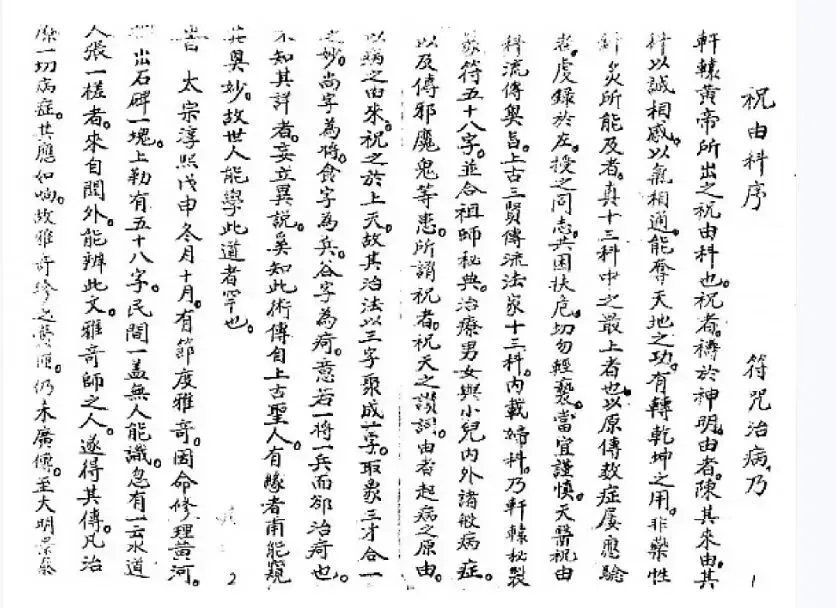 祝由科序 符咒治病,乃
軒轅黃帝所出之祝由科也。祝者。禱於神明。由者。陳其來由。其
科以誠相感。以氣相通。能奪天地之功。有轉乾坤之用。非藥性
針灸所能及者。真十三科中之最上者也。以原傳数症屡屡驗
者。虔錄於左。授之同志。共困扶危。切勿輕褻。當宜謹慎。天醫祝由
科流傳奧旨。上古三賢傳流法家十三科。內載婦科。乃軒轅秘製
符五十八字。並合祖師秘典。治療男女與小兒內外諸般病症。
以及傳邪魔鬼等患。所謂祝者。祝天之讚詞。由者起病之原由。
以病之由來。祝之於上天。故其治法以三字聚成一字。取象三才合一
之妙。尚字為將。食字為兵。谷字為疴。意若一將一兵而卻治疴也。
不知其詳者。妄立異說。奚知此術傳自上古聖人。有緣者甫能窺
其奧妙。故世人能學此道者罕也。
昔 太宗淳熙戊申冬月十月。有節度雅奇。因命修理黃河。
出石碑一塊。上勒有五十八字。民間一盖無人能識。忽有一雲水道
人張一槎者。來自關外。能辨此文。雅奇師之人。遂得其傳。凡治
一切病症。其應如响。故雅奇珍之 仍未廣傳。至大明景泰
1
2